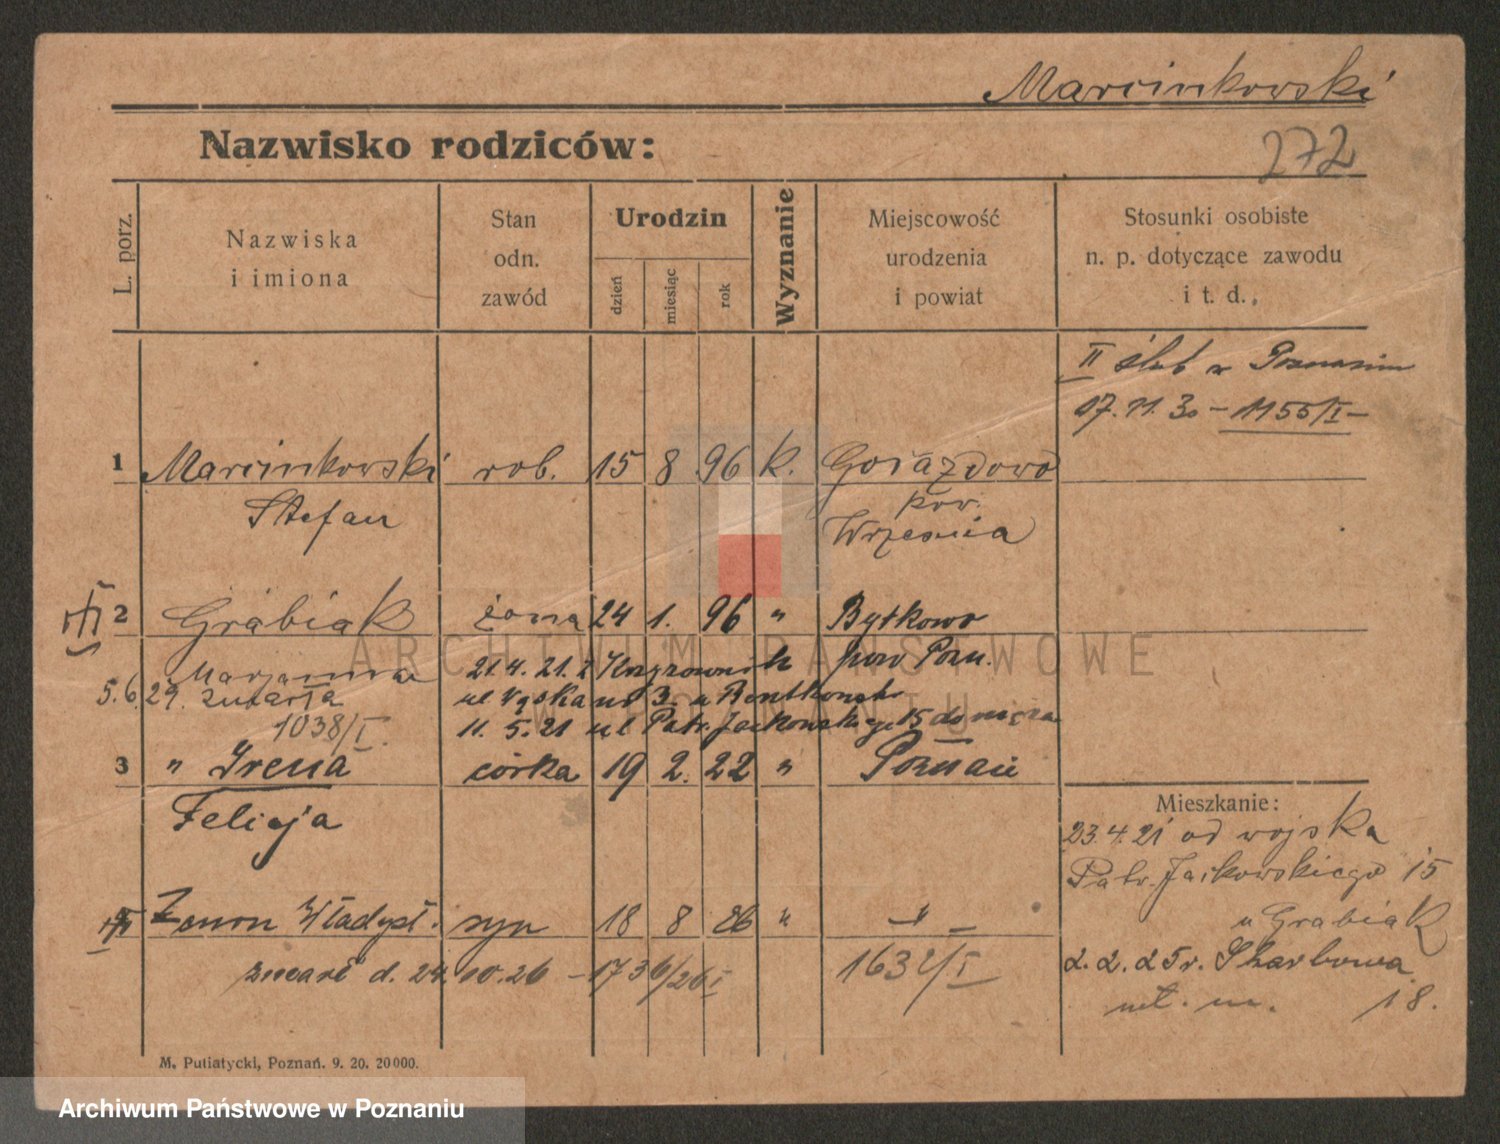 Marcinkowski
Nazwisko rodziców:
272
L. porz.
Nazwiska
i imiona
Stan
odn.
zawód
Urodzin
dzień
miesiąc
rok
Wyznanie
Miejscowość
urodzenia
i powiat
Stosunki osobiste
n. p. dotyczące zawodu
i t. d.,
II ślub w Poznaniu
17. 11. 30 - 1155/I -
1 Marcinkowski rob. 15 8 96 k. Goiazdowo
Stefan
pow.
Września
2 Grabiak żona 24 1. 96 " Bytkowo
Marjanna 21. 4. 21. z pow Pozn.
5. 6. 29. zmarła ul Wąska nr 3 u
1038/I. 11. 5. 21 ul Patr. Jackowskiego 15 do męża
3 " Irena córka 19 2. 22 " Poznań
Felicja
Zenon Władysł. syn 18 8 26 " "
zmarł d. 24. 10. 26 - 1736/26 I
1632/I
Mieszkanie:
23. 4. 21 od wojska
Patr. Jackowskiego 15
u Grabiak
2. 2. 25 r. Skarbowa
18.
M. Putiatycki, Poznań. 9. 20. 20000.
ARCHIWUM PAŃSTWOWE
W POZNANIU
Archiwum Państwowe w Poznaniu